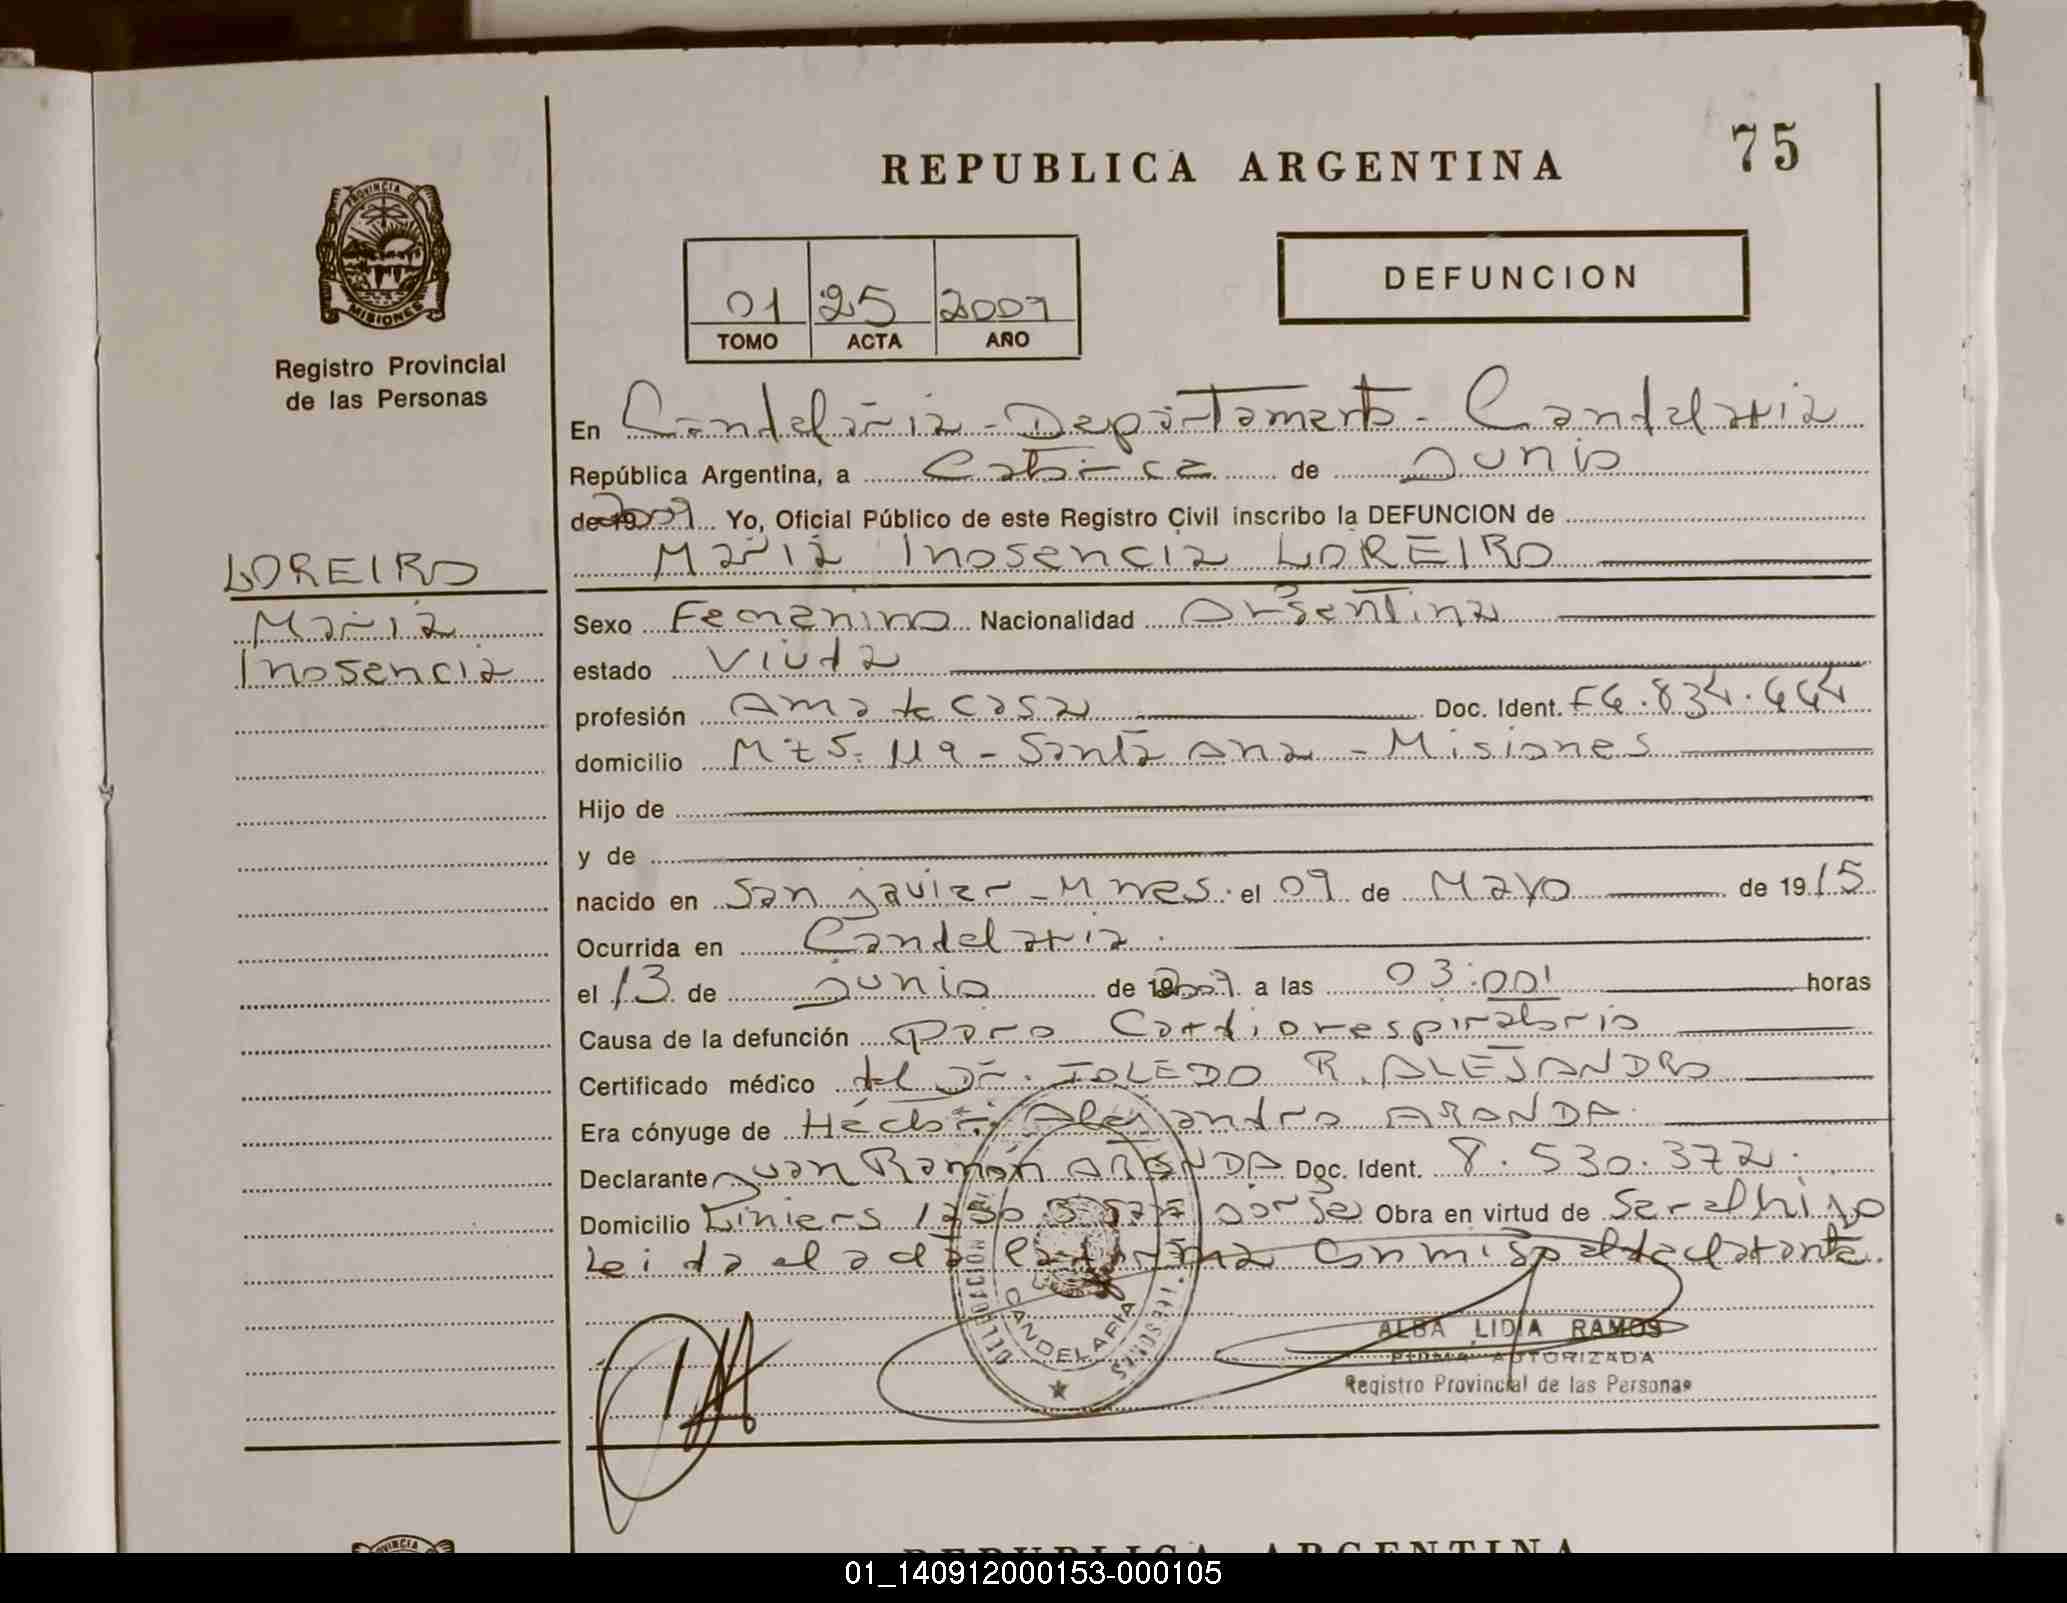 75
REPUBLICA ARGENTINA
PROVINCIA DE
MISIONES
Registro Provincial
de las Personas
DEFUNCION
01 25 2007
TOMO ACTA AÑO
En Candelaria - Departamento - Candelaria
República Argentina, a Catorce de Junio
de 19 2007 Yo, Oficial Público de este Registro Civil inscribo la DEFUNCION de
María Inosencia LOREIRO
LOREIRO
María
Inosencia
Sexo Femenino Nacionalidad Argentina
estado Viuda
profesión Ama de casa Doc. Ident. F6.834.464
domicilio Mz 5. - Santa Ana - Misiones
Hijo de
y de
nacido en San Javier - Mnes. el 09 de Mayo de 1915
Ocurrida en Candelaria.
el 13 de Junio de 2007 a las 03:00' horas
Causa de la defunción Paro Cardiorespiratorio
Certificado médico del Dr. TOLEDO R. ALEJANDRO
Era cónyuge de Héctor Alejandro ARONDA.
Declarante Juan Ramón ARONDA Doc. Ident. 8.530.372.
Domicilio Liniers Jorge Obra en virtud de Ser el hijo
Leida el acta la firma conmigo el declarante.
CANDELARIA
MISIONES
ALBA LIDIA RAMOS
FIRMA AUTORIZADA
Registro Provincial de las Personas
REPUBLICA ARGENTINA
01_140912000153-000105